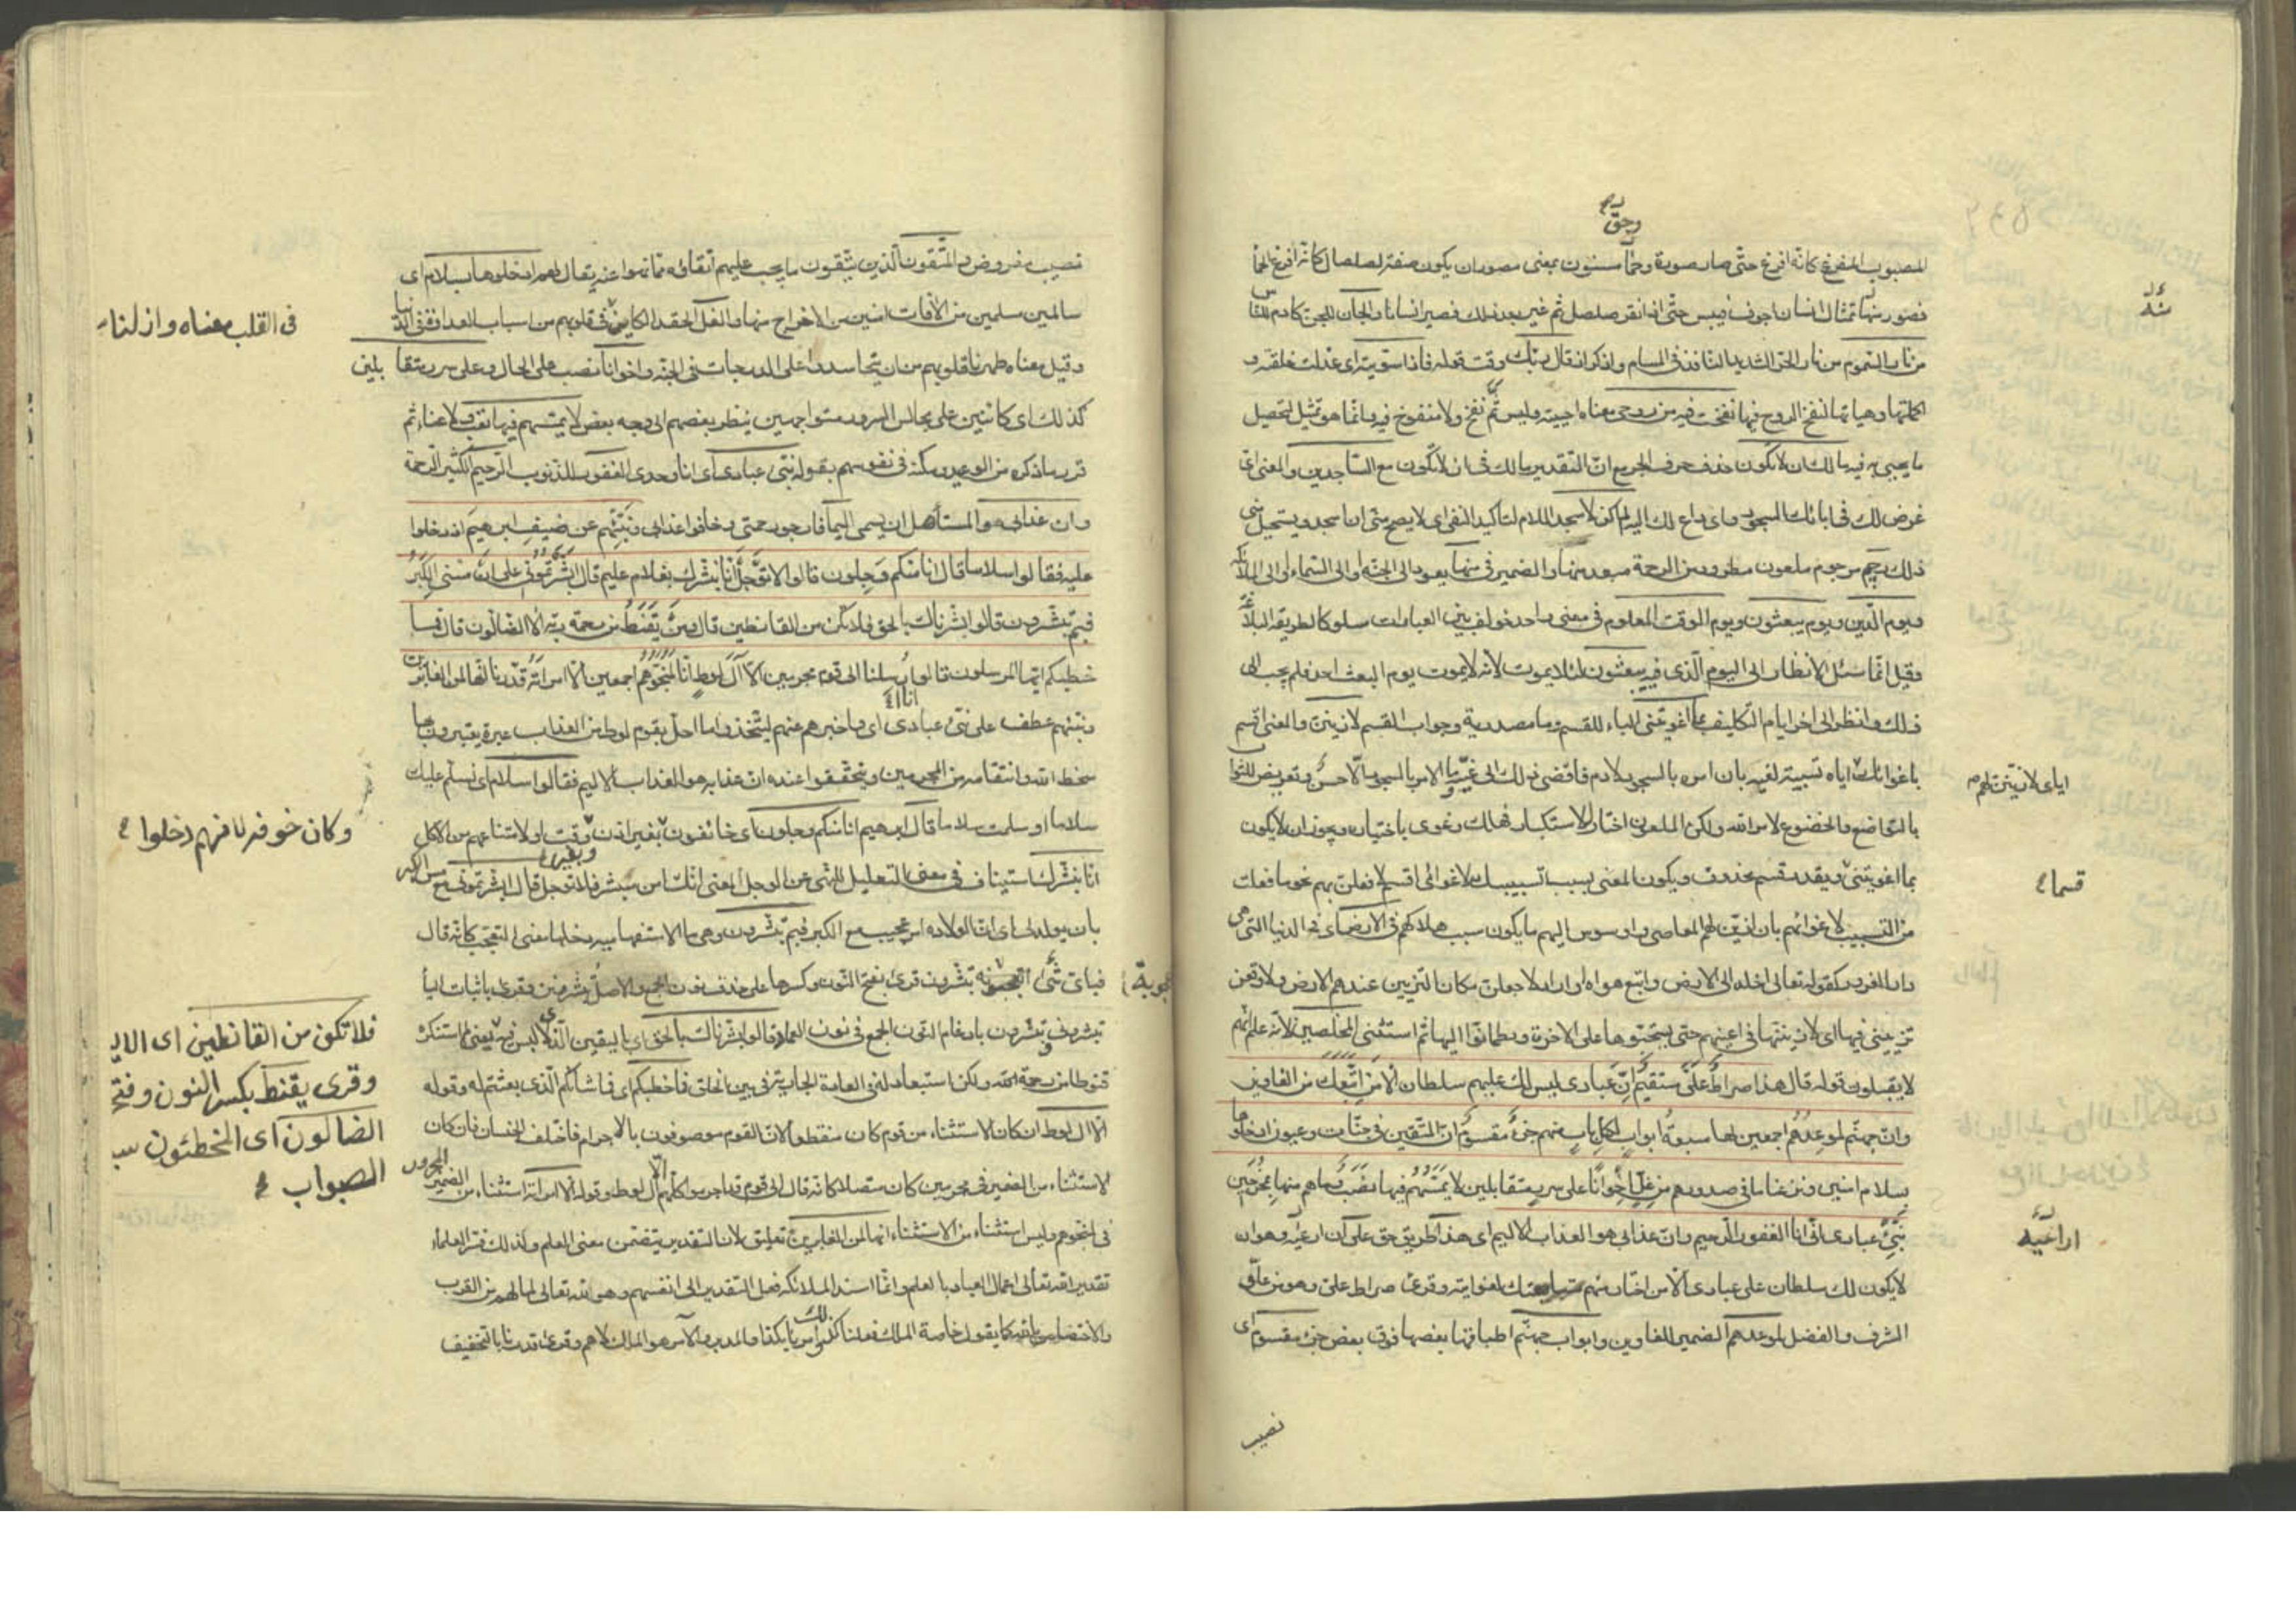 وحق
المصبوب المفرغ كانه افرغ حتى صار صورة وحمأ مسنون بمعنى مصور ان يكون صفة لصلصال كانه افرغ الحمأ
فصور منها تمثال انسان اجوف فيبس حتى اذا نقر صلصل ثم غير بعد ذلك فصير انسانا والجان للجن كادم للناس
من نار السموم من نار الحر الشديد النافذ فى المسام واذكر اذ قال ربك وقت قوله فاذا سويته اى عدلت خلقته و
اكملتها وهياتها لنفخ الروح فيها نفخت فيه من روحى معناه احييته وليس ثم نفخ ولا منفوخ فيه وانما هو تمثيل لتحصيل
ما يحيى به فيه مالك ان لا تكون حذف حرف الجر مع ان التقدير مالك فى ان لا تكون مع الساجدين والمعنى اى
غرض لك فى ابائك السجود واى داع لك اليه لم اكن لاسجد اللام لتاكيد النفى اى لا يصح منى ان اسجد ويستحيل منى
ذلك رجيم مرجوم ملعون مطرود من الرحمة مبعد منها والضمير فى منها يعود الى الجنة او الى السماء او الى الملائكة
ويوم الدين ويوم يبعثون ويوم الوقت المعلوم فى معنى واحد خولف بين العبارات سلوكا لطريقة البلاغة
وقيل انما سئل الانظار الى اليوم الذى فيه يبعثون لئلا يموت لانه لا يموت يوم البعث احد فلم يجب الى
ذلك وانظر الى اخر ايام التكليف بما اغويتنى الباء للقسم وما مصدرية وجواب القسم لازينن والمعنى اقسم
باغوائك اياه تسبيبه لغيه بان امره بالسجود لادم فافضى ذلك الى غيه وما الامر بالسجود الا حسن وتعريض للثواب
بالتواضع والخضوع لامر الله ولكن الملعون اختار الاستكبار فهلك وغوى باختياره ويجوز ان لا يكون
بما اغويتنى ويقدر قسم محذوف ويكون المعنى بسبب تسبيبك لاغوائى اقسم لافعلن بهم نحو ما فعلت
من التسبيب لاغوائهم بان ازين لهم المعاصى واوسوس اليهم ما يكون سبب هلاكهم فى الارض اى فى الدنيا التى هى
دار الغرور كقوله تعالى اخلد الى الارض واتبع هواه او اراد لاجعلن مكان التزيين عندهم الارض ولاوقعن
تزيينى فيها اى لازيننها فى اعينهم حتى يستحبوها على الاخرة ويطمانوا اليها ثم استثنى المخلصين لانه علم انهم
لا يقبلون قوله قال هذا صراط على مستقيم ان عبادى ليس لك عليهم سلطان الا من اتبعك من الغاوين
وان جهنم لموعدهم اجمعين لها سبعة ابواب لكل باب منهم جزء مقسوم ان المتقين فى جنات وعيون ادخلوها
بسلام امنين ونزعنا ما فى صدورهم من غل اخوانا على سرر متقابلين لا يمسهم فيها نصب وما هم منها بمخرجين
نبئ عبادى انى انا الغفور الرحيم وان عذابى هو العذاب الاليم اى هذا طريق حق على ان اراعيه وهو ان
لا يكون لك سلطان على عبادى الا من اختار منهم متابعتك لغوايته وقرئ صراط على وهو من علو
الشرف والفضل لموعدهم الضمير للغاوين وابواب جهنم اطباقها بعضها فوق بعض جزء مقسوم اى
نصيب
اياى لازينن لهم
قسما
اراعيه
نصيب مفروض والمتقون الذين يتقون ما يجب عليهم اتقاؤه مما نهوا عنه يقال لهم ادخلوها بسلام اى
سالمين مسلمين من الآفات امنين من الاخراج منها والغل الحقد الكامن فى قلوبهم من اسباب العداوة فى الدنيا
وقيل معناه طهرنا قلوبهم من ان يتحاسدوا على الدرجات فى الجنة واخوانا نصب على الحال وعلى سرر متقابلين
كذلك اى كائنين على مجالس السرور متواجهين ينظر بعضهم الى وجه بعض لا يمسهم فيها تعب ولا عناء ثم
قرر ما ذكره من الوعيد ومكنه فى نفوسهم بقوله نبئ عبادى اى انا وحدى الغفور للذنوب الرحيم الكثير الرحمة
وان عذابى هو المستاهل ان يسمى اليما فارجوا رحمتى وخافوا عذابى ونبئهم عن ضيف ابرهيم اذ دخلوا
عليه فقالوا سلاما قال انا منكم وجلون قالوا لا توجل انا نبشرك بغلام عليم قال ابشرتمونى على ان مسنى الكبر
فبم تبشرون قالوا بشرناك بالحق فلا تكن من القانطين قال ومن يقنط من رحمة ربه الا الضالون قال فما
خطبكم ايها المرسلون قالوا انا ارسلنا الى قوم مجرمين الا آل لوط انا لمنجوهم اجمعين الا امراته قدرنا انها لمن الغابرين
ونبئهم عطف على نبئ عبادى اى واخبرهم عنهم ليتخذوا ما احل بقوم لوط من العذاب عبرة يعتبرون بها
سخط الله وانتقامه من المجرمين ويتحققوا عنده ان عذابه هو العذاب الاليم فقالوا سلاما اى نسلم عليك
سلاما او سلمت سلاما قال ابرهيم انا منكم وجلون اى خائفون بغير اذن وبغير وقت او لامتناعهم من الاكل
انا نبشرك استيناف فى معنى التعليل للنهى عن الوجل يعنى انك امن مبشر فلا توجل قال ابشرتمونى مع مس الكبر
بان يولد لى اى ان الولادة امر عجيب مع الكبر فبم تبشرون وهى ما الاستفهامية دخلها معنى التعجب كانه قال
فباى اعجوبة تبشرون قرئ بفتح النون وكسرها على حذف نون الجمع والاصل تبشرونن وقرئ باثبات الياء
تبشرونى وتبشرون بادغام النون الجمع فى نون العماد قالوا بشرناك بالحق اى باليقين الذى لا لبس فيه يعنى لم استنكر
قنوطا من رحمة الله ولكن استبعادا له فى العادة الجارية بين الخلق فما خطبكم اى فما شانكم الذى بعثتم له وقوله
الا ال لوط ان كان الاستثناء من قوم كان منقطعا لان القوم موصوفون بالاجرام فاختلف الجنسان فان كان
الاستثناء من الضمير فى مجرمين كان متصلا كانه قال الى قوم قد اجرموا كلهم الا ال لوط وقوله الا امراته استثناء من الضمير المجرور
فى لمنجوهم وليس استثناء من الاستثناء انها لمن الغابرين تعليق لان التقدير يتضمن معنى العلم ولذلك فسر العلماء
تقدير الله تعالى اعمال العباد بالعلم وانما اسند الملائكة فعل التقدير الى انفسهم وهو لله تعالى لما لهم من القرب
والاختصاص بالله كما يقول خاصة الملك فعلنا كذا وامرنا بكذا والمدبر والآمر هو الملك لا هم وقرئ قدرنا بالتخفيف
فى القلب معناه وازلنا
وكان خوفه لانهم دخلوا
فلا تكن من القانطين اى الاي
وقرى يقنط بكسر النون وفتح
الضالون اى المخطئون سب
الصواب